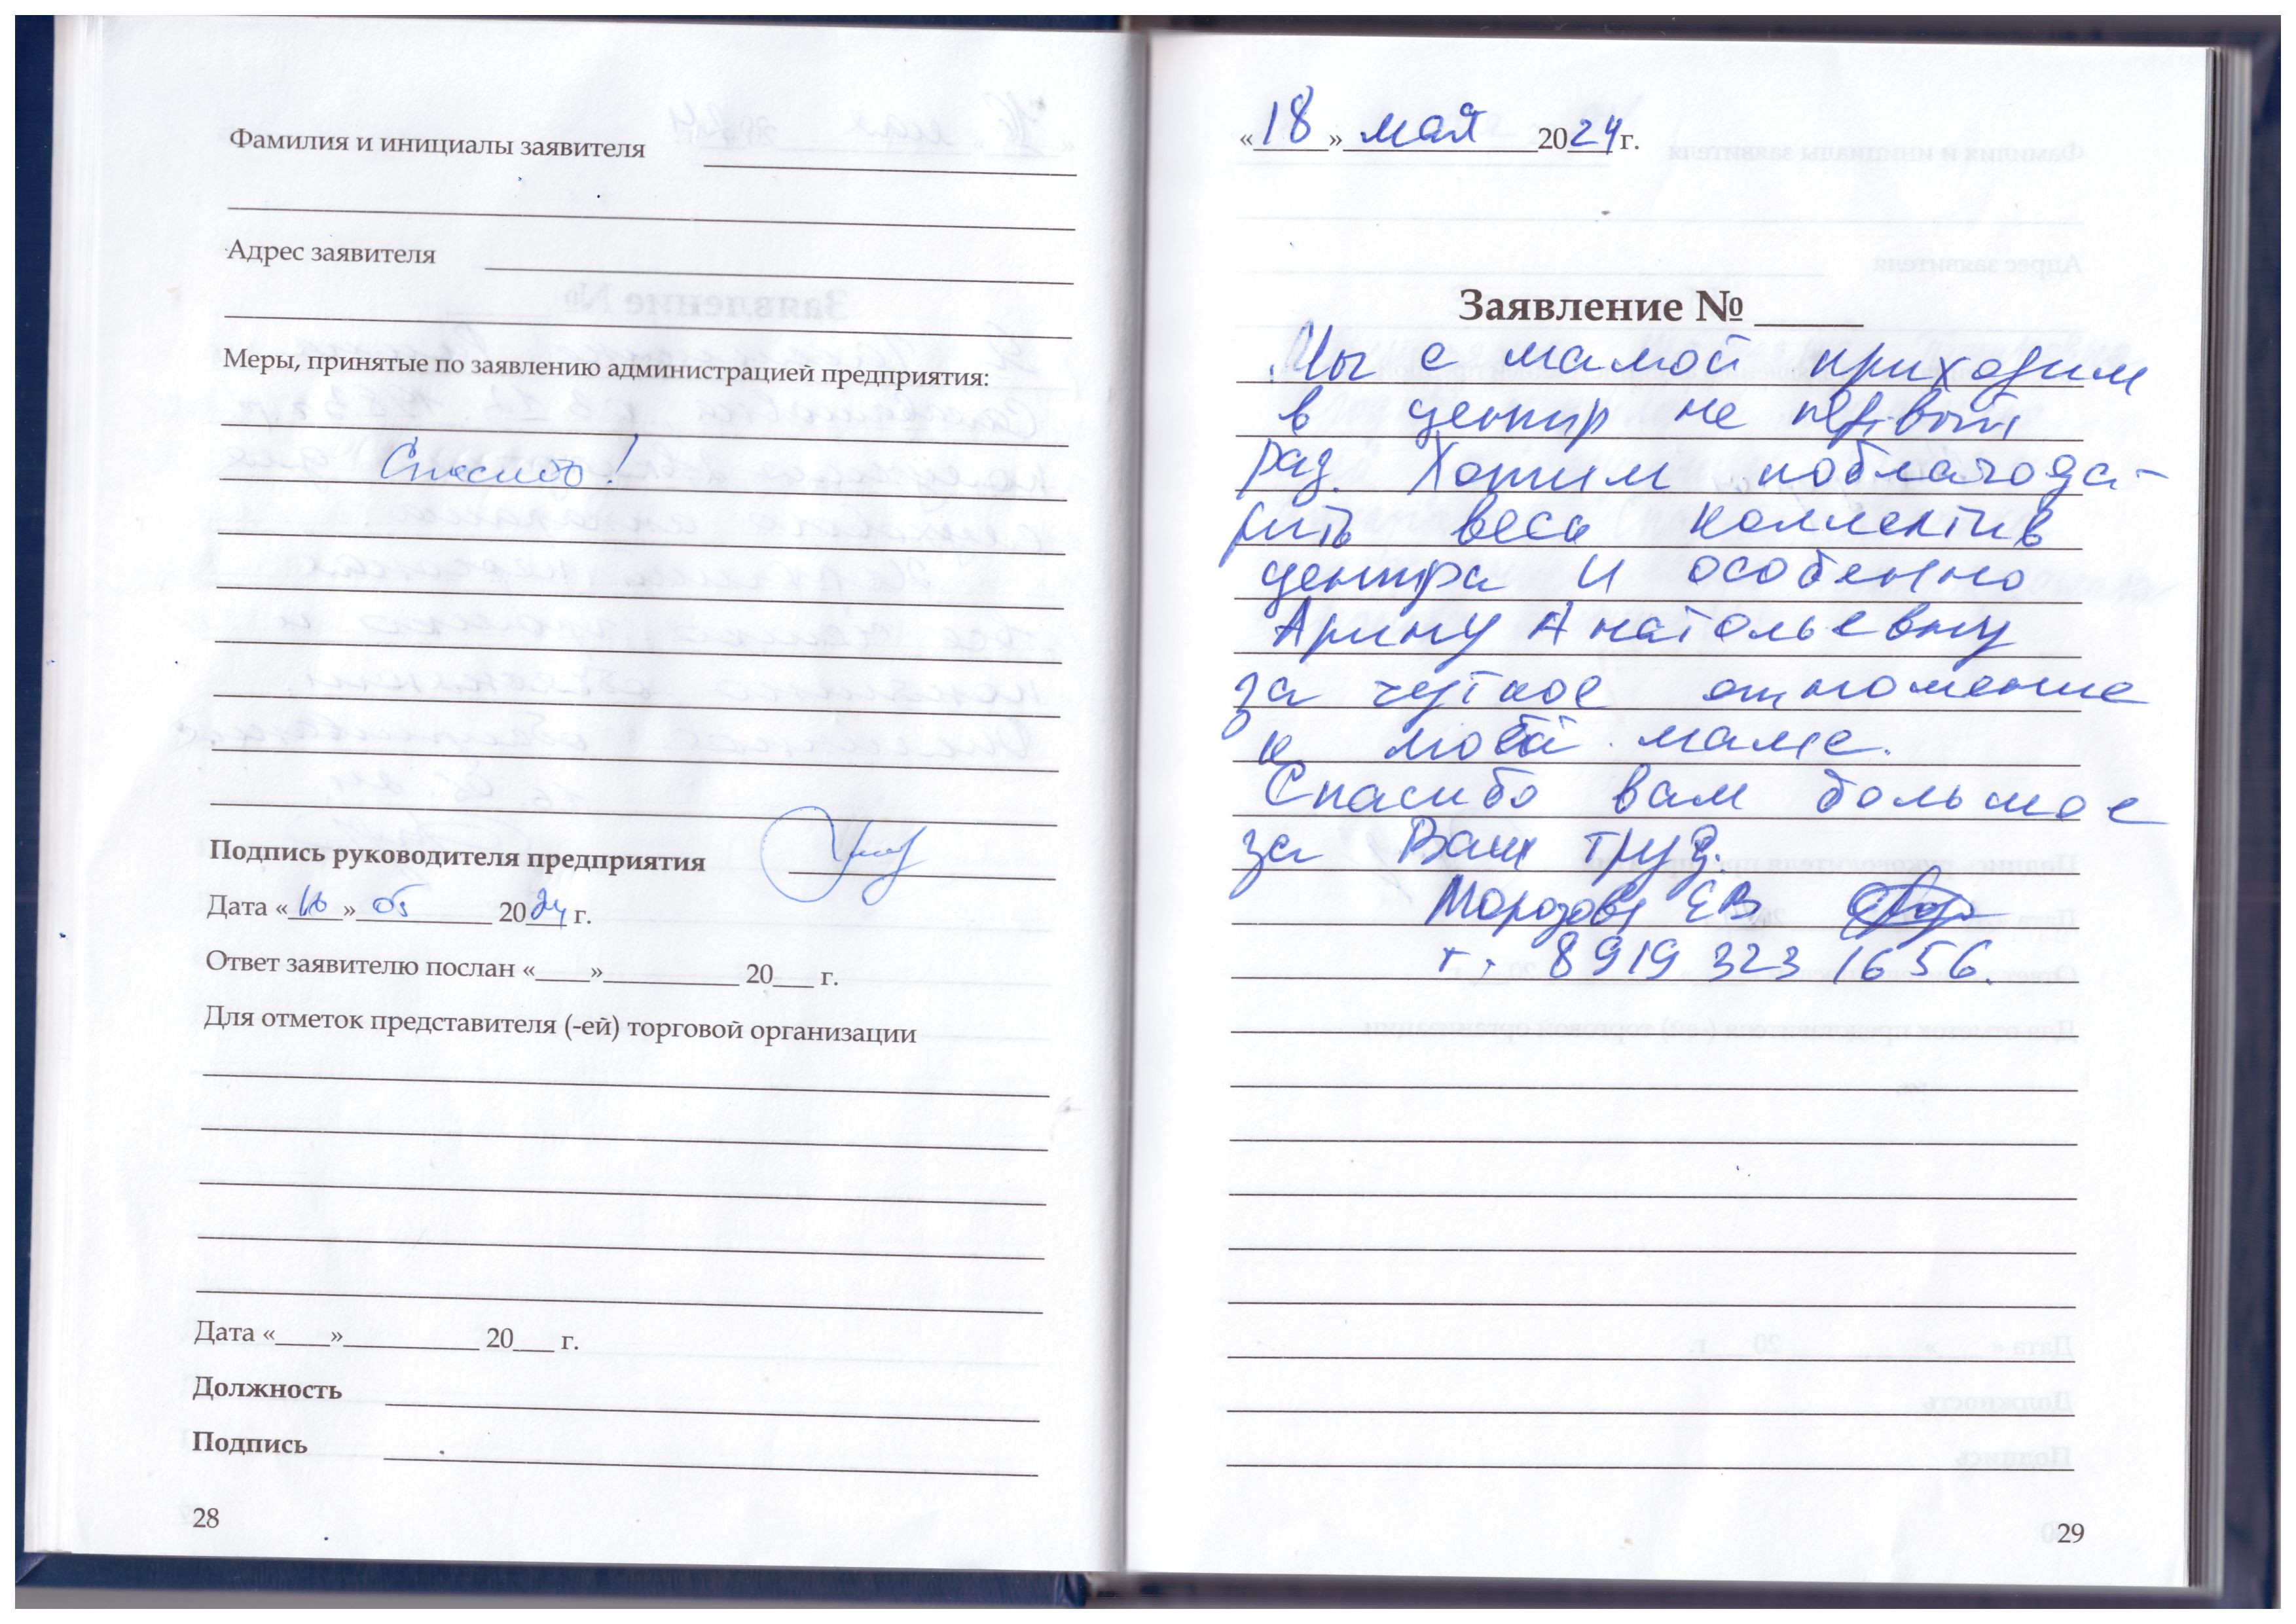 Фамилия и инициалы заявителя
Адрес заявителя
Меры, принятые по заявлению администрацией предприятия:
Спасибо!
Подпись руководителя предприятия
Дата «16» 05 2024 г.
Ответ заявителю послан «____»__________ 20___ г.
Для отметок представителя (-ей) торговой организации
Дата «____»__________ 20___ г.
Должность
Подпись
28
«18» мая 2024 г.
Заявление № _____
Мы с мамой приходим
в центр не первый
раз. Хотим поблагода-
рить весь коллектив
центра и особенно
Арину Анатольевну
за чуткое отношение
к моей маме.
Спасибо вам большое
за Ваш труд.
Морозова ЕВ
т. 8 919 323 1656.
29